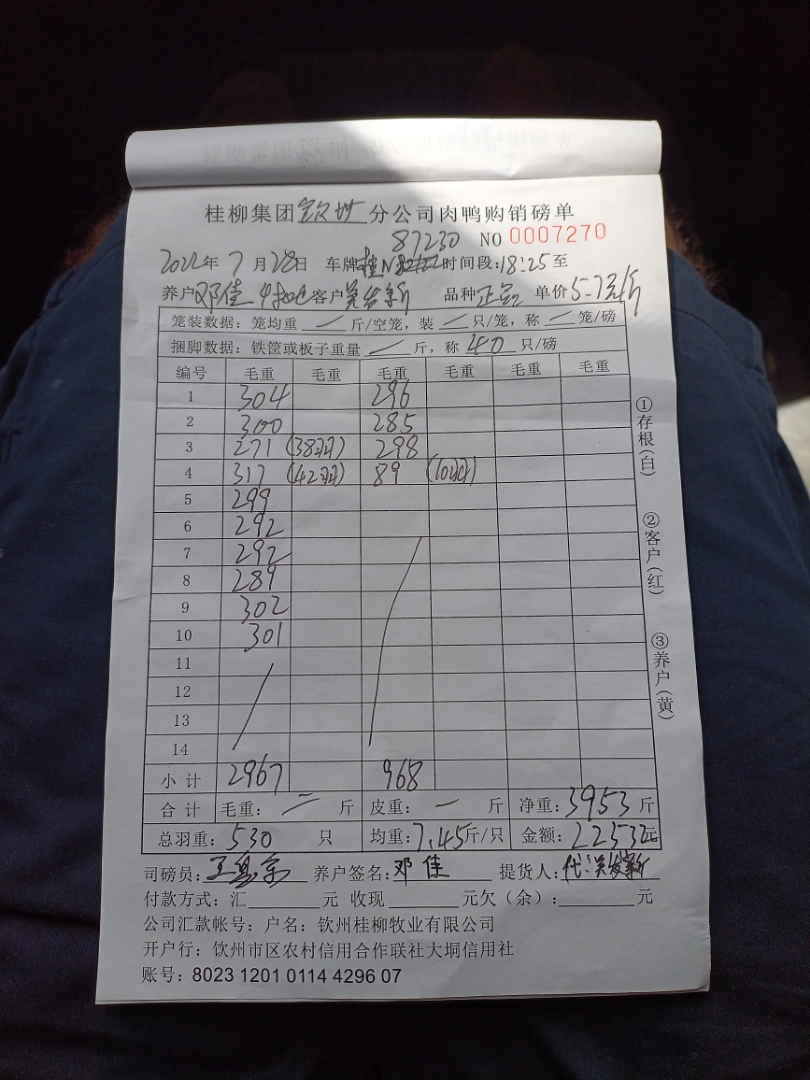 桂柳集团钦州分公司肉鸭购销磅单
87230 NO 0007270
2022年7月28日 车牌桂N 时间段:18:25至
养户邓佳 客户关发新 品种正品 单价5.7元/斤
笼装数据:笼均重 一 斤/空笼,装 一 只/笼,称 一 笼/磅
捆脚数据:铁筐或板子重量 一 斤,称 40 只/磅
编号 毛重 毛重 毛重 毛重 毛重 毛重
1 304 296
2 300 285
3 271 (38羽) 298
4 317 (42羽) 89 (10羽)
5 299
6 292
7 292
8 289
9 302
10 301
11
12
13
14
小计 2967 968
合计 毛重: 一 斤 皮重: 一 斤 净重:3953斤
总羽重:530 只 均重:7.45斤/只 金额:22532元
司磅员: 养户签名:邓佳 提货人:代:关发新
付款方式:汇 元 收现 元欠(余): 元
公司汇款帐号:户名:钦州桂柳牧业有限公司
开户行:钦州市区农村信用合作联社大垌信用社
账号:8023 1201 0114 4296 07
①存根(白)
②客户(红)
③养户(黄)